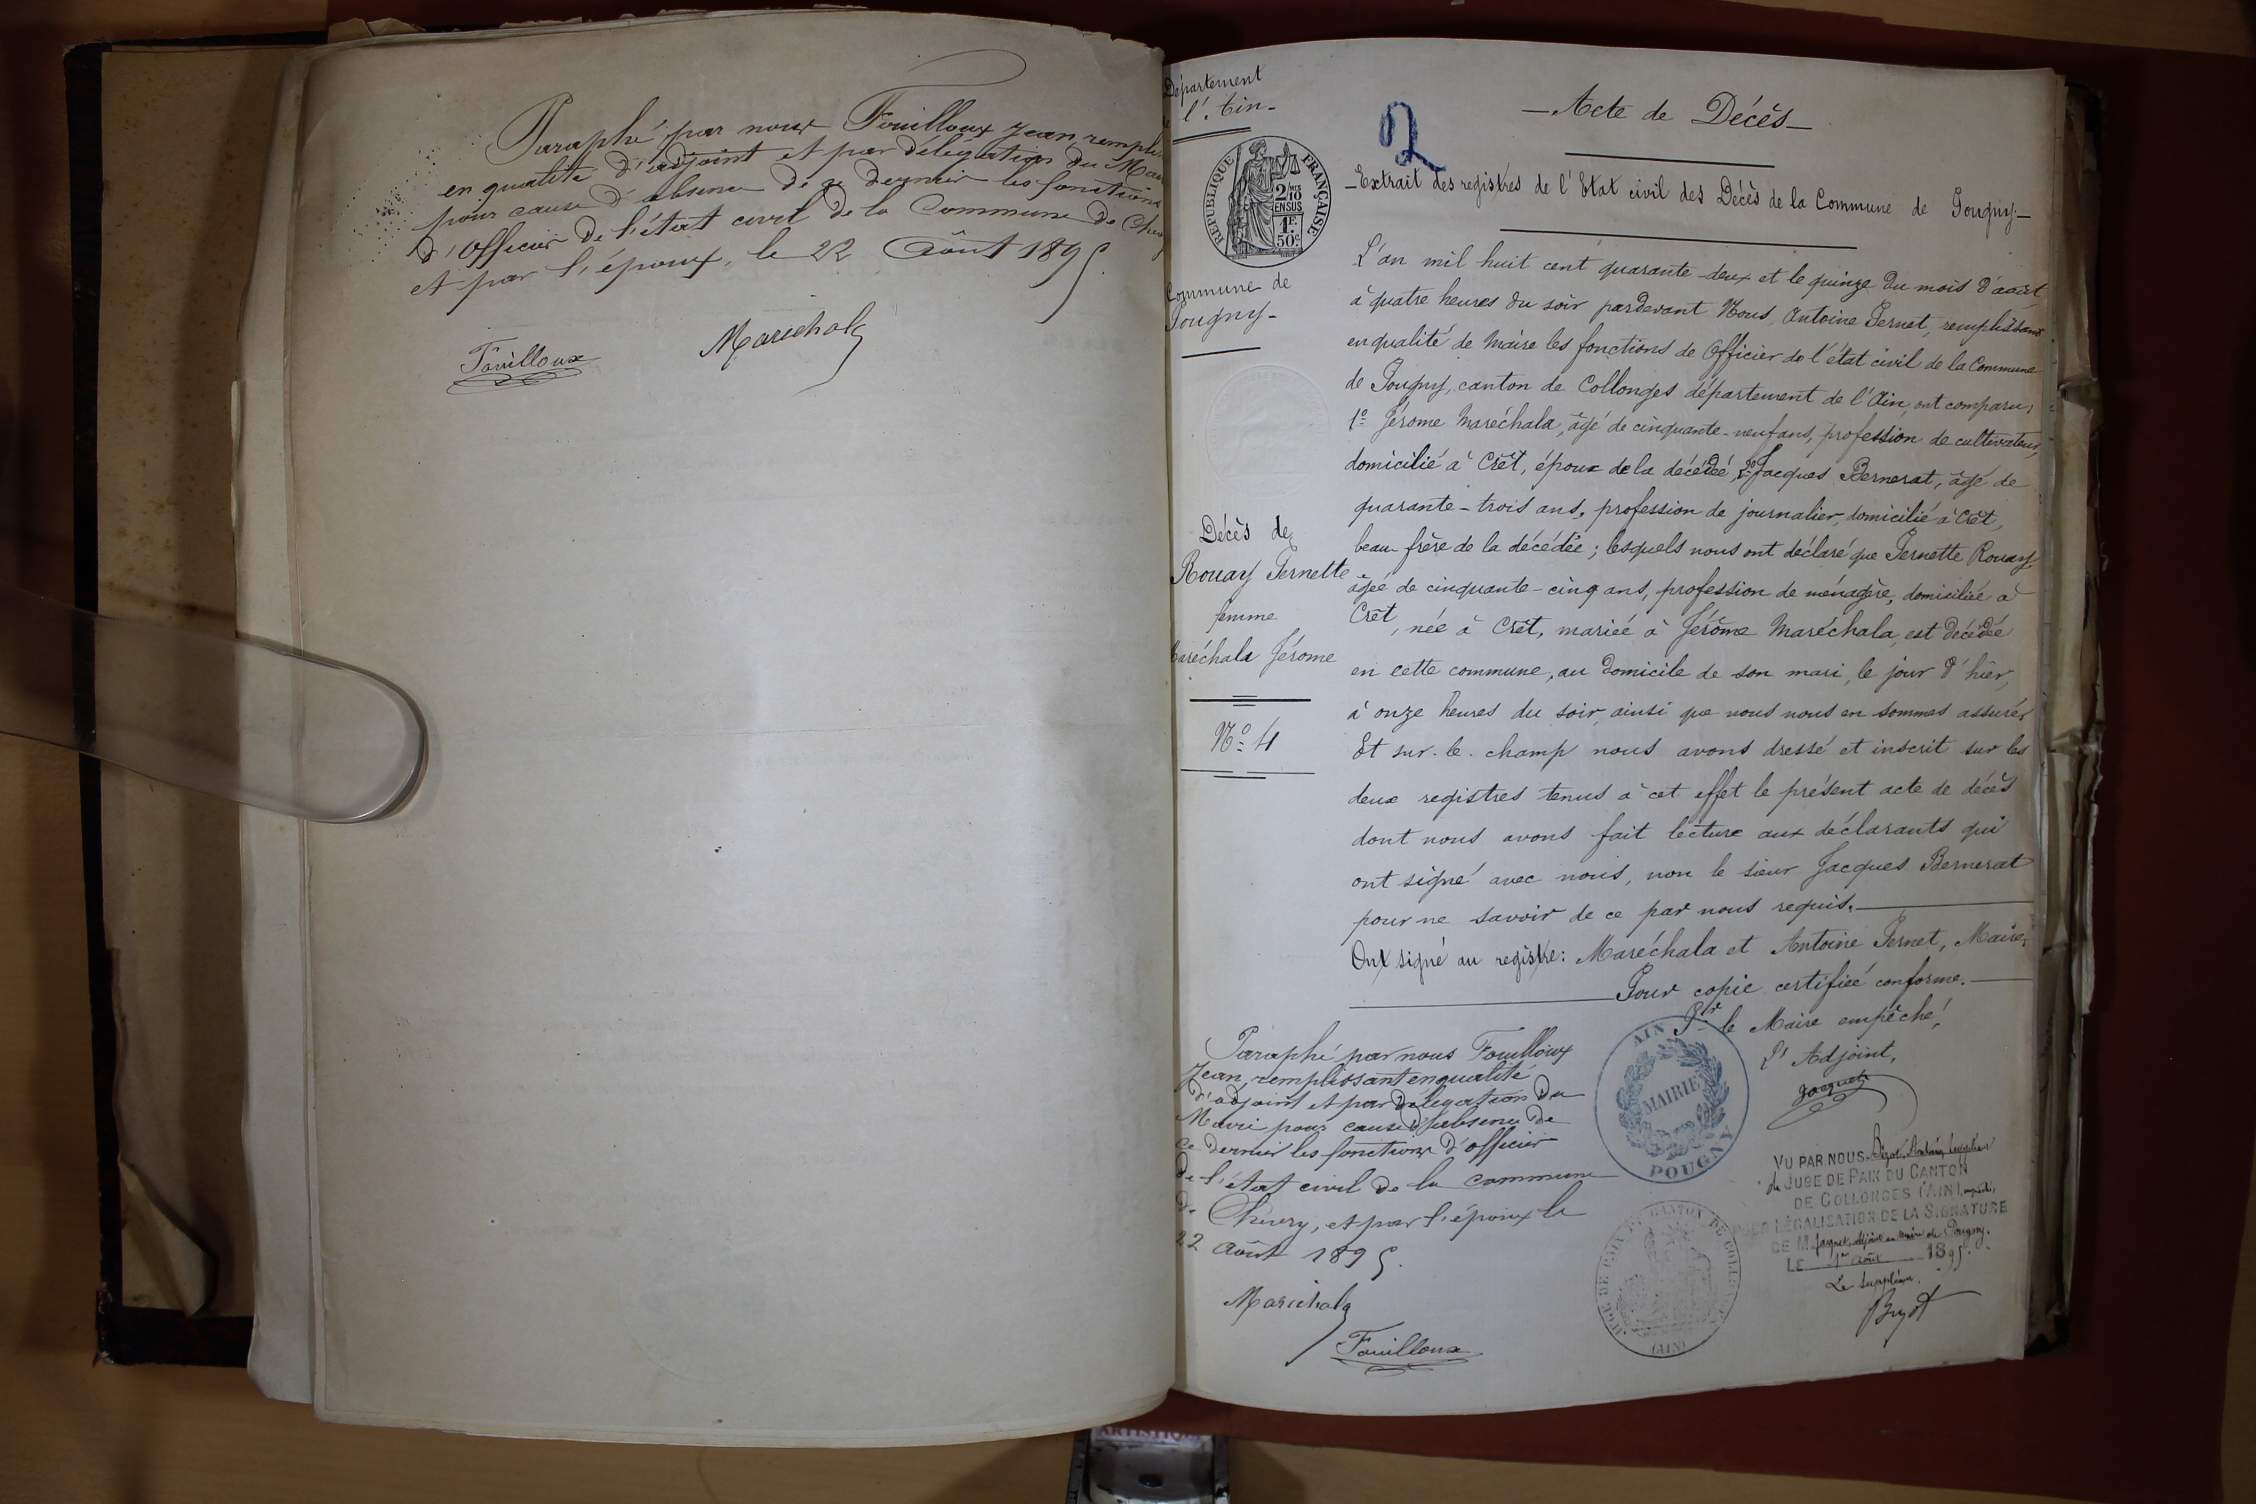 Paraphé par nous Fouilloux Jean, rempli
en qualité d'adjoint et par délégation du Mai
pour cause d'absence de ce dernier les fonctions
d'Officier de l'état civil de la Commune de Chev
et par l'époux, le 22 Août 1895.
Fouilloux
Maréchala
Département
l'Ain-
RÉPUBLIQUE FRANÇAISE
2/10 EN SUS
1F. 50c.
Commune de
Pougny-
Décès de
Rouay Pernette
femme
Maréchala Jérome
Nº 4
2
- Acte de Décès -
- Extrait des registres de l'Etat civil des Décès de la Commune de Pougny -
L'an mil huit cent quarante-deux et le quinze du mois d'août
à quatre heures du soir pardevant Nous, Antoine Pernet, remplissant
en qualité de Maire les fonctions de Officier de l'état civil de la Commune
de Pougny, canton de Collonges département de l'Ain, ont comparu,
1º Jérome Maréchala, âgé de cinquante-neuf ans, profession de cultivateur,
domicilié à Crêt, époux de la décédée, 2º Jacques Bernerat, âgé de
quarante-trois ans, profession de journalier, domicilié à Crêt,
beau-frère de la décédée; lesquels nous ont déclaré que Pernette Rouay,
âgée de cinquante-cinq ans, profession de ménagère, domiciliée à
Crêt, née à Crêt, mariée à Jérôme Maréchala, est décédée
en cette commune, au domicile de son mari, le jour d'hier,
à onze heures du soir, ainsi que nous nous en sommes assurés,
Et sur-le-champ nous avons dressé et inscrit sur les
deux registres tenus à cet effet le présent acte de décès
dont nous avons fait lecture aux déclarants qui
ont signé avec nous, non le sieur Jacques Bernerat
pour ne savoir de ce par nous requis.
Ont signé au registre: Maréchala et Antoine Pernet, Maire,
Pour copie certifiée conforme.
Pr le Maire empêché,
L'Adjoint,
Jacquet
AIN
MAIRIE
POUGNY
Paraphé par nous Fouilloux
Jean, remplissant en qualité
d'adjoint et par délégation du
Maire pour cause d'absence de
ce dernier les fonctions d'officier
de l'état civil de la commune
de Chévry, et par l'époux le
22 Août 1895.
Maréchala
Fouilloux
VU PAR NOUS suppléant
du JUGE DE PAIX DU CANTON
DE COLLONGES (AIN) empêché,
POUR LÉGALISATION DE LA SIGNATURE
DE M. Jaquet, adjoint au maire de Pougny.
LE 1er Août 1895.
Le suppléant.
JUGE DE PAIX DU CANTON DE COLLONGES
(AIN)